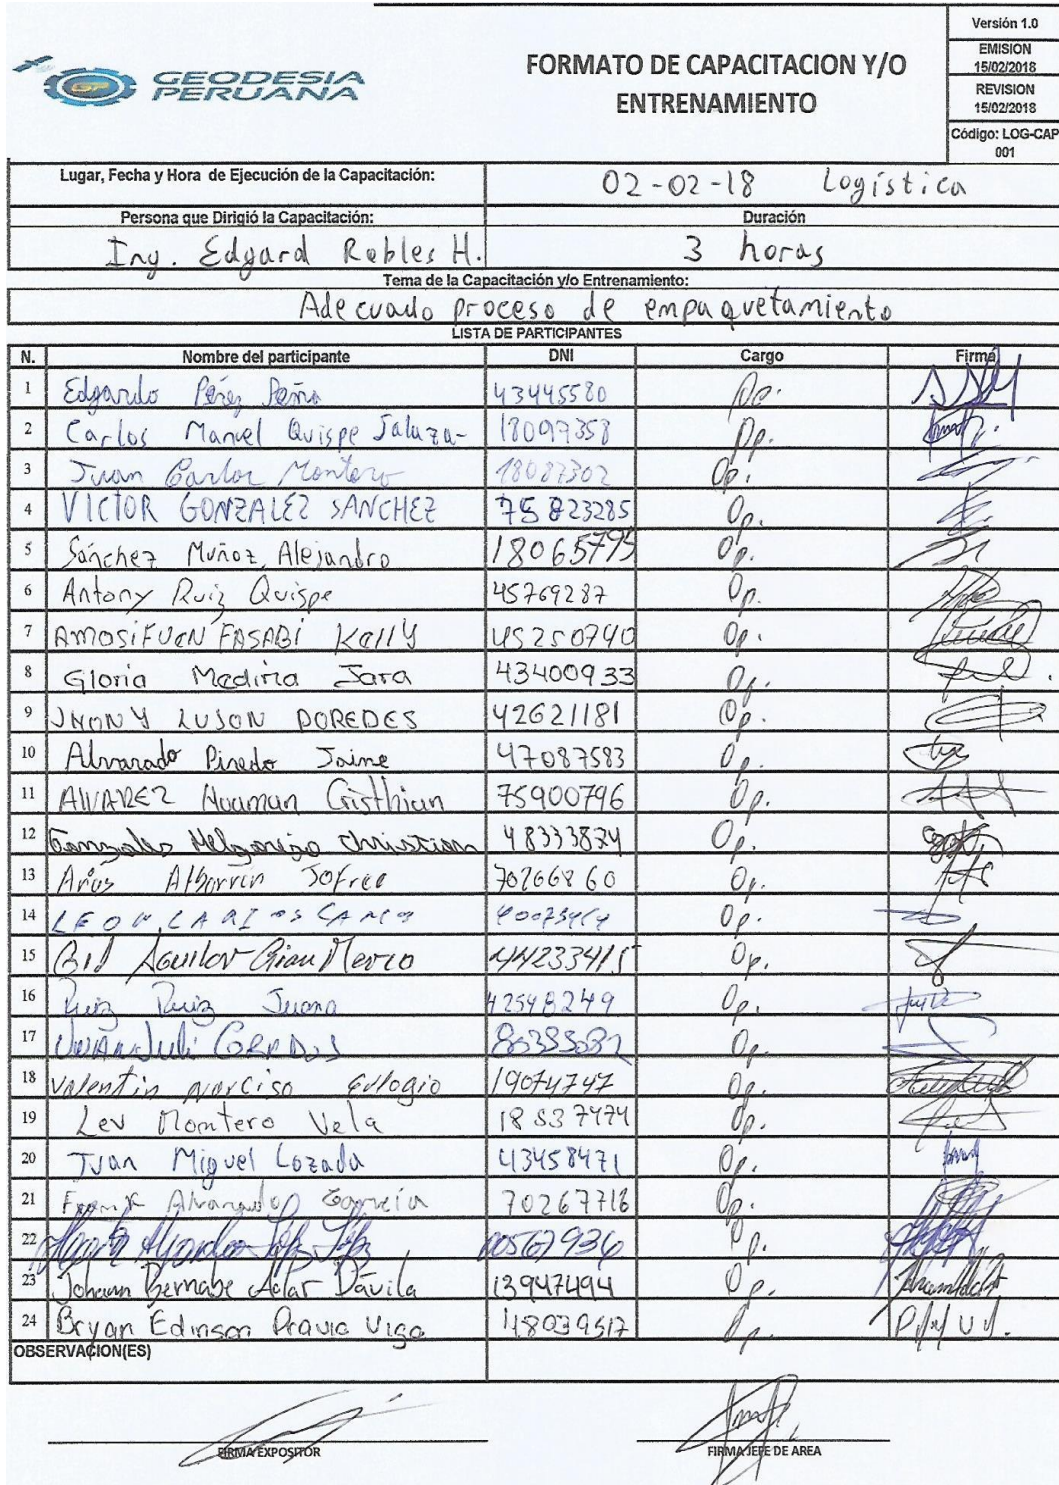 Versión 1.0
GEODESIA PERUANA
GP
FORMATO DE CAPACITACION Y/O ENTRENAMIENTO
EMISION
15/02/2018
REVISION
15/02/2018
Código: LOG-CAP
001
Lugar, Fecha y Hora de Ejecución de la Capacitación: 02-02-18 Logística
Persona que Dirigió la Capacitación: Duración
Ing. Edgard Robles H. 3 horas
Tema de la Capacitación y/o Entrenamiento:
Adecuado proceso de empaquetamiento
LISTA DE PARTICIPANTES
N. Nombre del participante DNI Cargo Firma
1 Edgardo Pérez Peña 43445580 Op.
2 Carlos Manuel Quispe 18097358 Op.
3 Juan Carlos Montero 18087302 Op.
4 VICTOR GONZALEZ SANCHEZ 75823285 Op.
5 Sánchez Muñoz, Alejandro 18065795 Op.
6 Antony Ruiz Quispe 45769287 Op.
7 AMOSIFUEN FASABI Kelly 45250740 Op.
8 Gloria Medina Jara 43400933 Op.
9 JHONY LUJON POREDES 42621181 Op.
10 Alvarado Pinedo Jaime 47087583 Op.
11 AlVAREZ Huaman Cristhian 75900796 Op.
12 Gonzales Melgarejo Christian 48333874 Op.
13 Arias Albarrin Jofree 70266860 Op.
14 Op.
15 Gil Aguilar Gian Marco 44233415 Op.
16 Ruiz Ruiz Juana 42548249 Op.
17 Op.
18 Valentin Narciso Eulogio 19074747 Op.
19 Lev Montero Vela 18837474 Op.
20 Juan Miguel Lozada 43458471 Op.
21 Frank Alvarado García 70267718 Op.
22 00567936 Op.
23 Johann Bernabe Aclar Dávila 13947494 Op.
24 Bryan Edinson Pravia Vigo 48039517 Op.
OBSERVACION(ES)
FIRMA EXPOSITOR FIRMA JEFE DE AREA